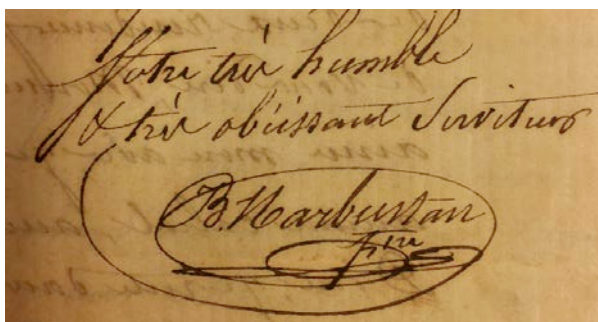 Votre très humble
& très obéissant Serviteur
B. Narbustan